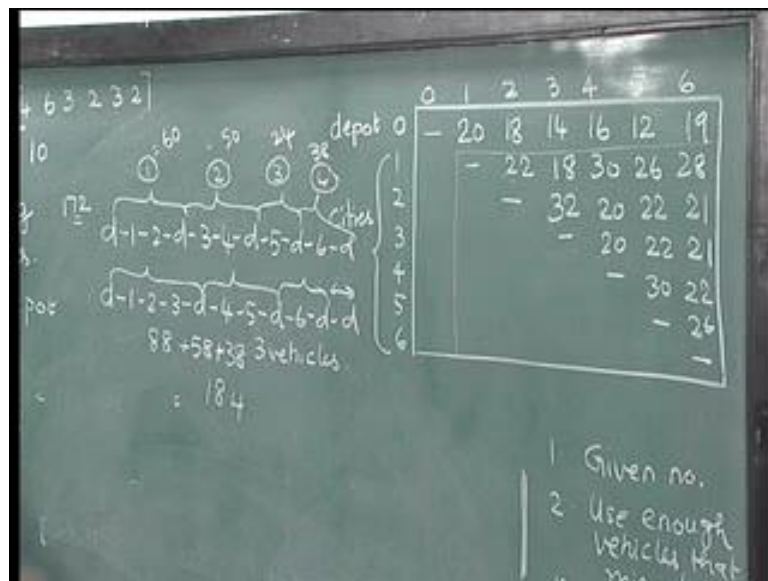 6 3 2 3 2]
10
60 50 24 38
1 2 3 4
d-1-2-d-3-4-d-5-d-6-d
d-1-2-3-d-4-5-d-6-d-d
88+58+38 3 vehicles.
= 184
0 1 2 3 4 5 6
depot 0 - 20 18 14 16 12 19
cities
1 - 22 18 30 26 28
2 - 32 20 22 21
3 - 20 22 21
4 - 30 22
5 - 26
6 -
1 Given no.
2 Use enough
vehicles that